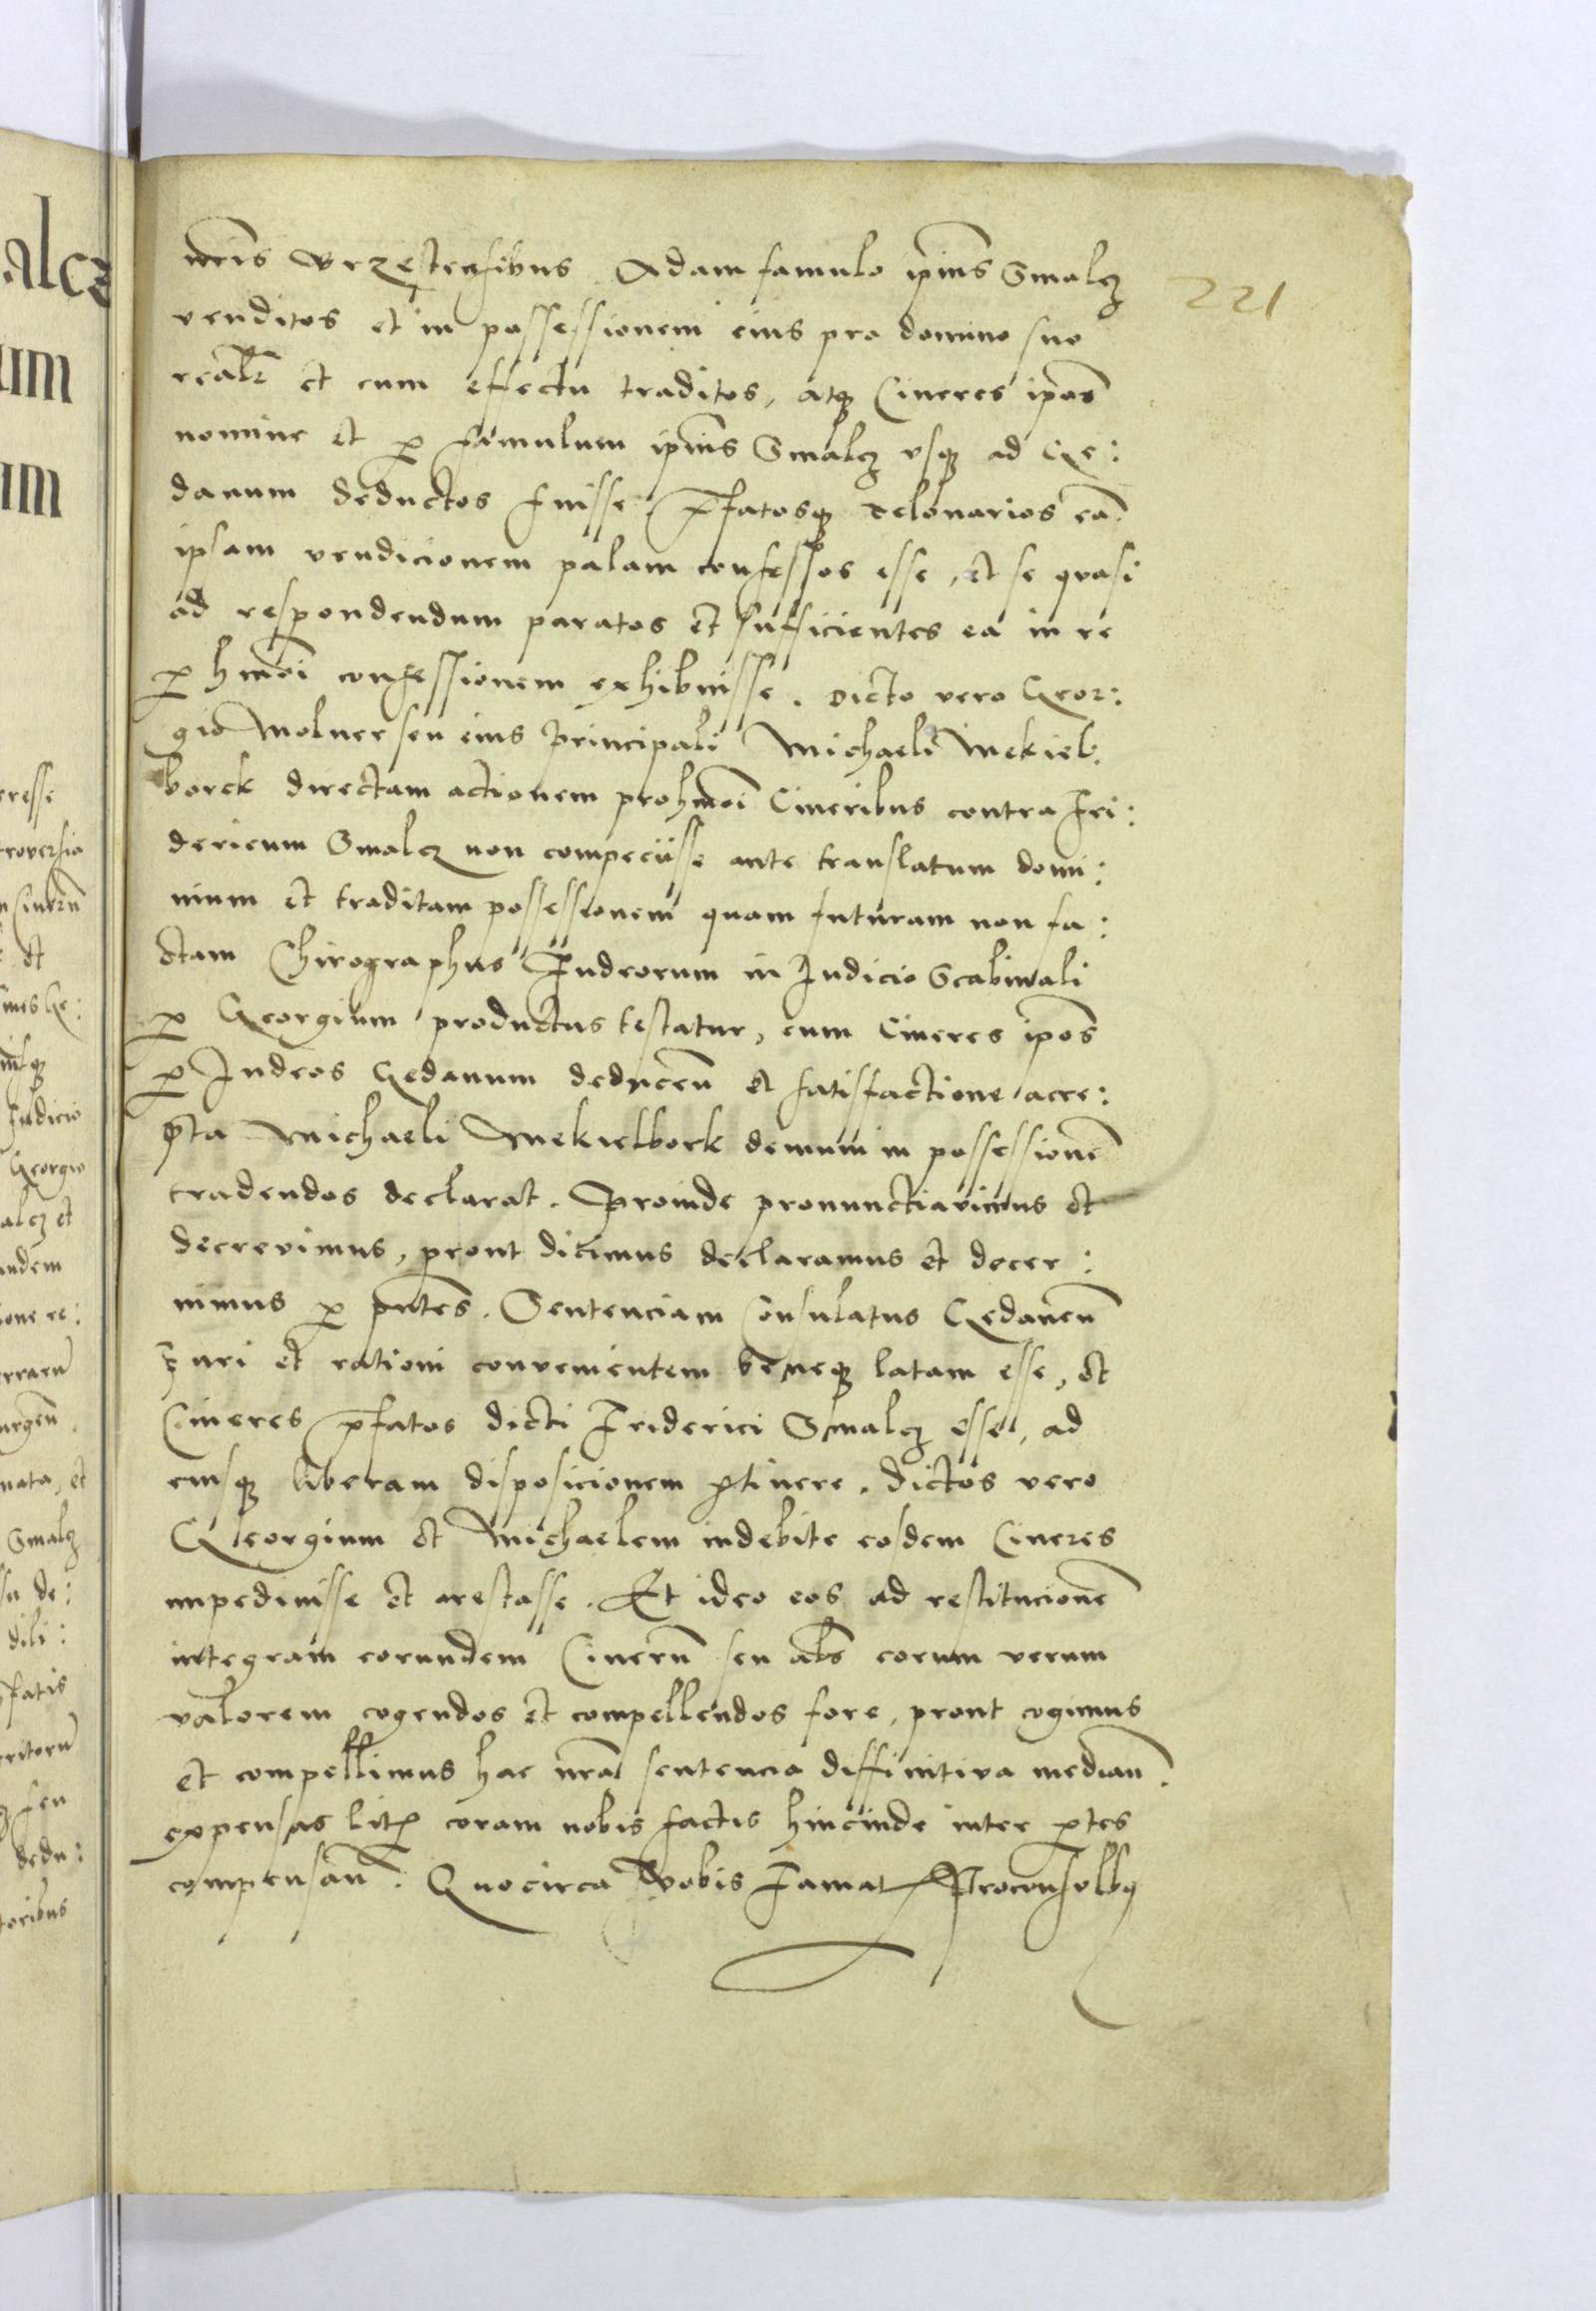 221
nrĩs Brzestensibus Adam famulo ipiũs Smalcz
venditos et in possessionem eius pro domino suo
realr̃ et cum effectu traditos, atq̃ Cineres ipõs
nomine et p̱ famulum ipiũs Smalcz vsq̃ ad Ge:
danum deductos fuisse. p̃fatosq̃ telonarios eã
ipsam vendicionem palam confessos esse, et se quasi
ad respondendum paratos et sufficientes ea in re
p̱ hm̃oi confessionem exhibuisse. Dicto vero Geor:
gio Molner seu eius principali Michaeli Mekiel:
borck directam actionem pro hm̃oi Cineribus contra Fri:
dericum Smalcz non compeciisse ante translatum domi:
nium et traditam possessionem quam futuram non fa:
ctam Chirographus Iudeorum in Iudicio Scabinali
p̱ Georgium productus testatur, cum Cineres ipõs
p̱ Iudeos Gedanum deducen̄ et satisfactione acce:
pta Michaeli Mekielbork demum in possessionẽ
tradendos declarat. Proinde pronunctiavimus et
decrevimus, prout dicimus declaramus et decer:
nimus p̱ pñtes. Sentenciam Consulatus Gedanen̄
Iuri et rationi convenientem beneq̃ latam esse, et
Cineres p̃fatos dicti Friderici Smalcz esse, ad
eiusq̃ liberam disposicionem p̱tinere. Dictos vero
Georgium et Michaelem indebite eosdem Cineres
impedivisse et arestasse. Et ideo eos ad restitucionẽ
integram eorundem Cinerũ seu als̃ eorum verum
valorem cogendos et compellendos fore, prout cogimus
et compellimus hac nrã sentencia diffinitiva median̄.
expensas litis coram nobis factis hincinde inter p̱tes
compensan̄. Quocirca Vobis Famatis Proconsolbꝫ